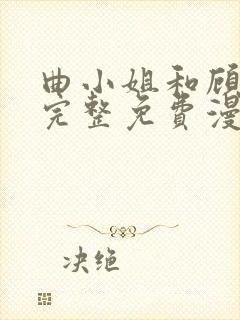 曲小姐和顾
完整免費漫
决绝